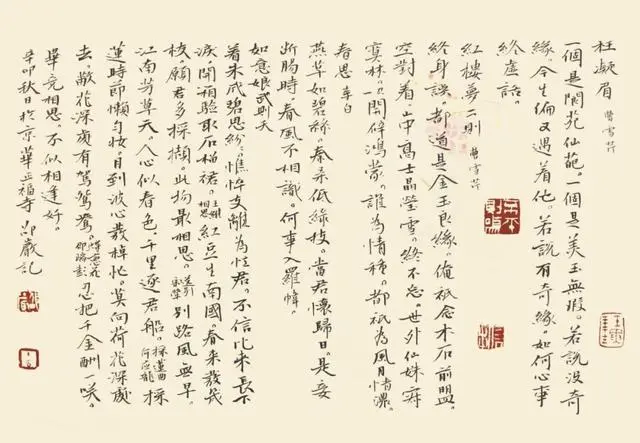 枉凝眉 曹雪芹
一個是閬苑仙葩。一個是美玉無瑕。若說沒奇
緣。今生偏又遇着他。若說有奇緣。如何心事
終虛話。
紅樓夢二則 曹雪芹
終身誤。都道是金玉良緣。俺衹念木石前盟。
空對着。山中高士晶瑩雪。終不忘。世外仙姝寂
寞林。一開辟鴻蒙。誰為情種。都衹為風月情濃。
春思 李白
燕草如碧絲。秦桑低綠枝。當君懷歸日。是妾
斷腸時。春風不相識。何事入羅幃。
如意娘 武則天
看朱成碧思紛紛。憔悴支離為憶君。不信比來長下
淚。開箱驗取石榴裙。相思 王維 紅豆生南國。春來發幾
枝。願君多採擷。此物最相思。送別 別路風無早。
江南芳草天。人心似春色。千里逐君船。採蓮曲 何應龍 採
蓮時節懶勻妝。日到波心棹忙。莫向荷花深處
去。荷花深處有鴛鴦。蝶戀花 邵瑞彭 忍把千金酬一笑。
畢竟相思。不似相逢好。
辛卯秋日於京華正福寺 邵巖記